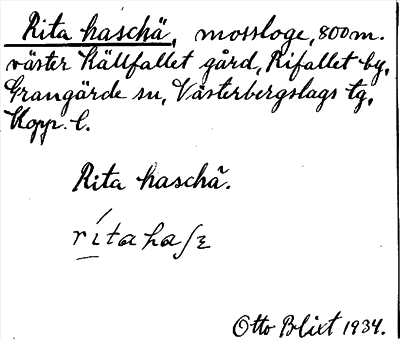 Rita haschä, mossloge, 800 m.
väster Källfallet gård, Rifallet by,
Grangärde sn, Västerbergslags tg,
Kopp. l.
Rita haschä.
rítahaʃɛ
Otto Blixt 1934.